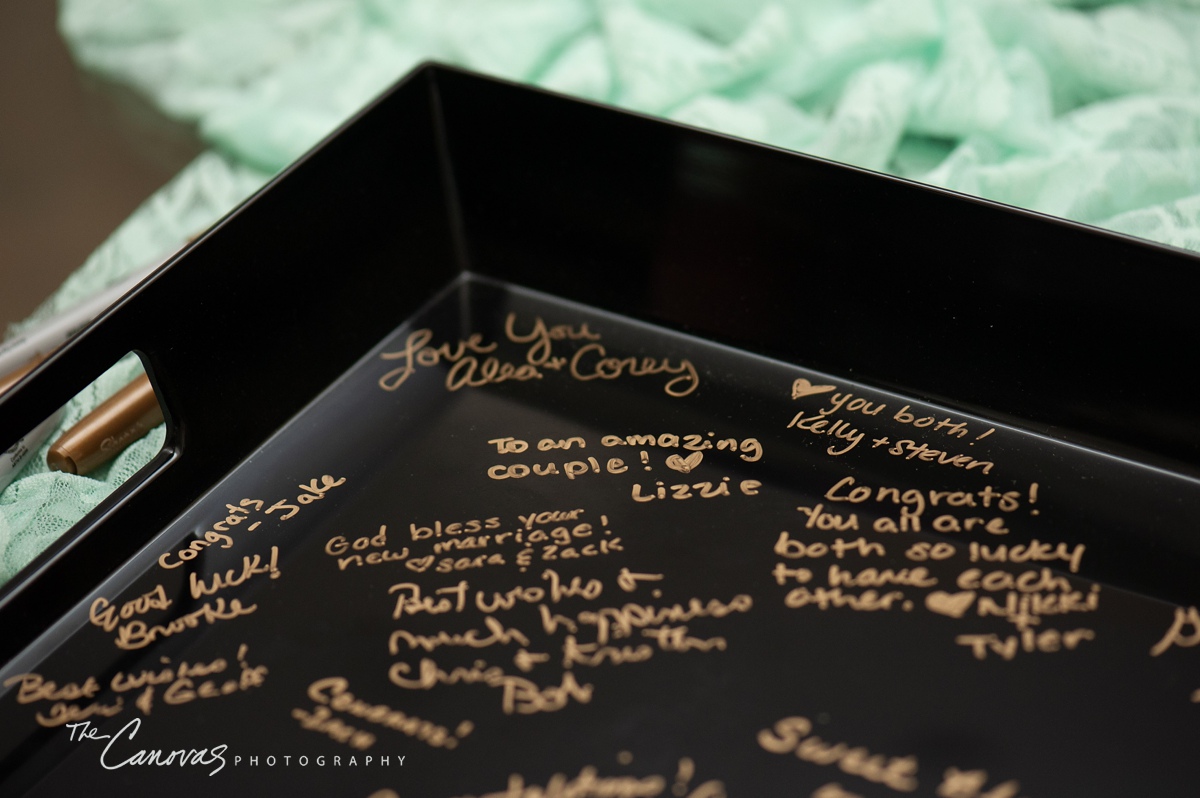 Love You
Alea + Corey
you both!
Kelly + Steven
To an amazing
couple!
Lizzie
Congrats!
You all are
both so lucky
to have each
other. Nikki
Tyler
Congrats
- Jake
God bless your
new marriage!
Sara & Zack
Good luck!
Brooke
Best wishes &
much happiness
Chris + Kristin
Bob
Best wishes!
& Geoff
Congrats!
Sweet
The Canovas PHOTOGRAPHY